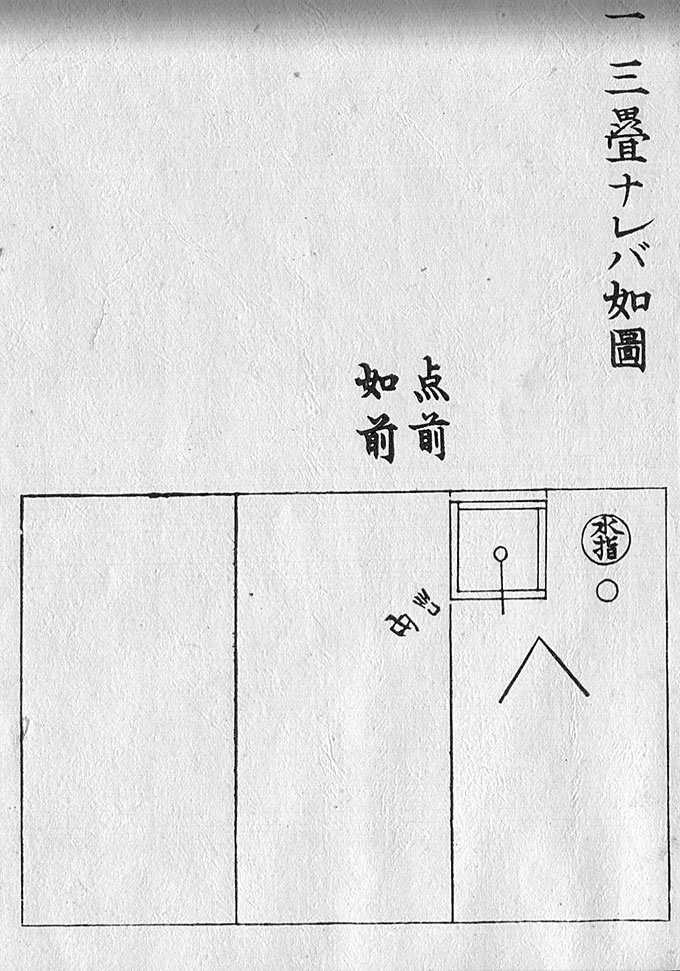 一 三疊ナレバ如圖
点前
如前
水指